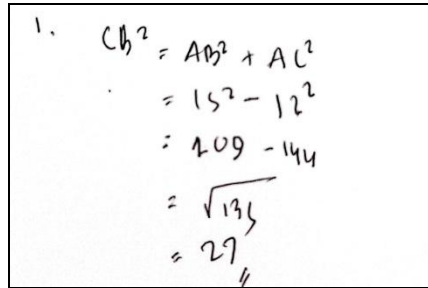 1. CB² = AB² + AC²
= 15² - 12²
= 209 - 144
= √135
= 27 //